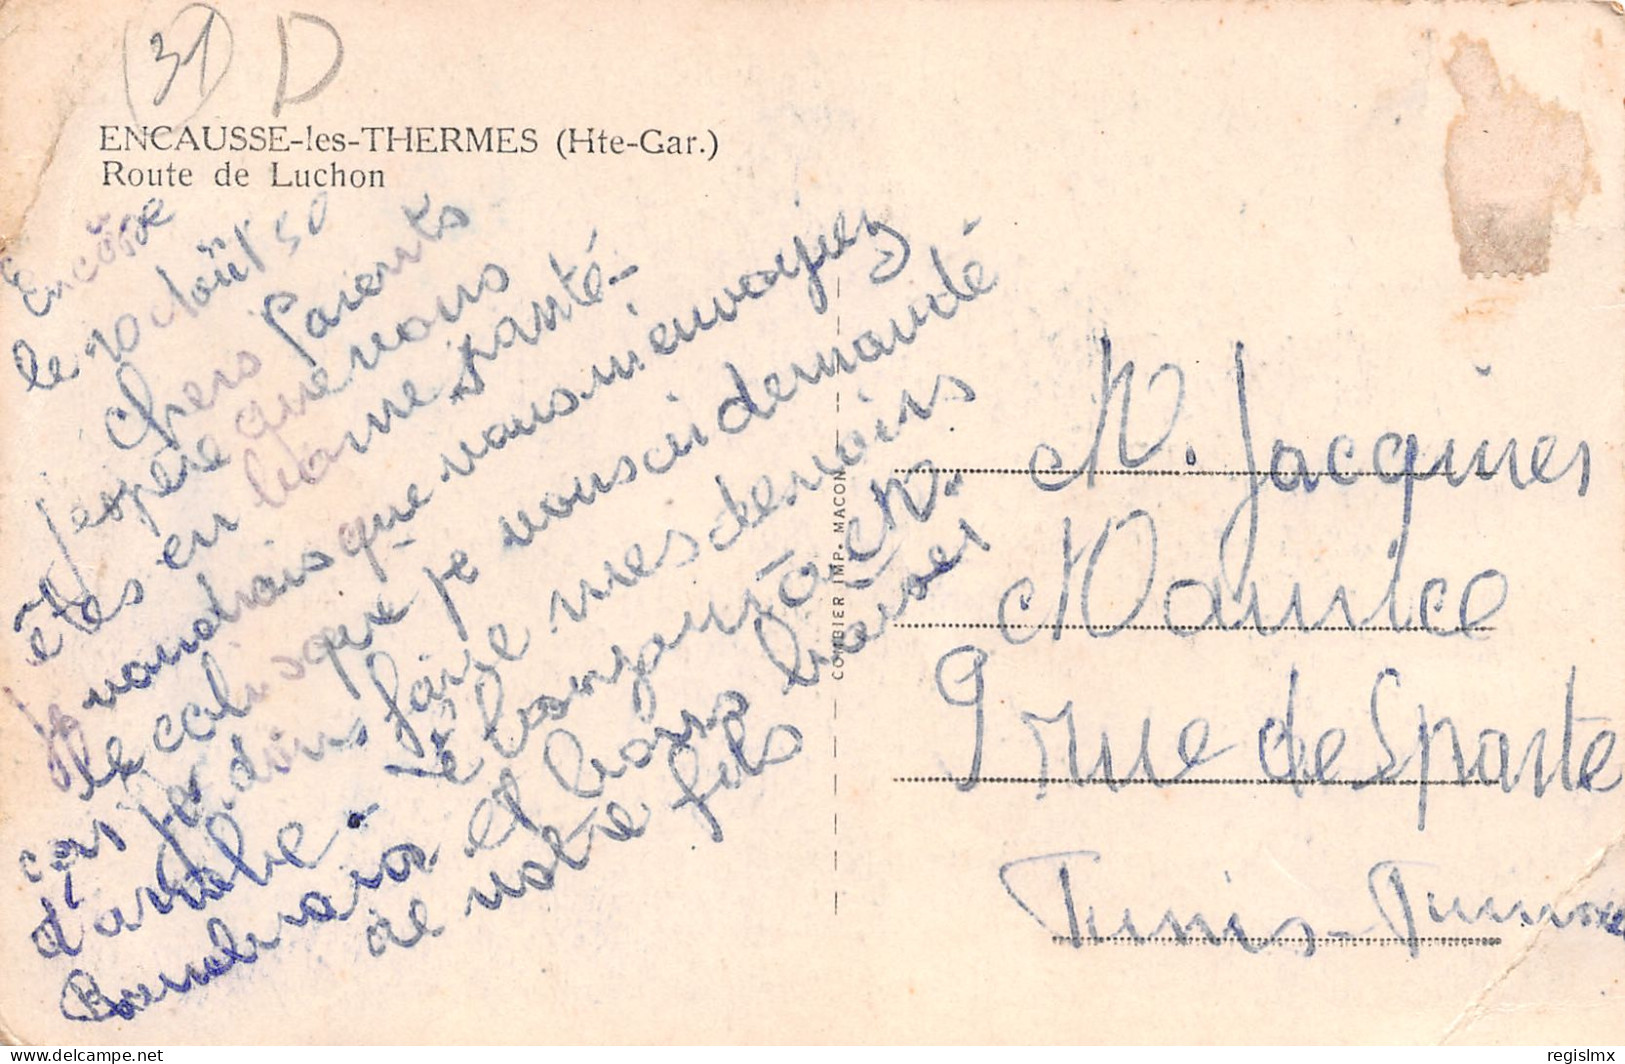 (31) D
ENCAUSSE-les-THERMES (Hte-Gar.)
Route de Luchon
Encôsse
le 10 doût 50
Chers Parents
J'espère que vous
êtes en bonne santé-
Je voudrais que vous m'envoyiez
le colis que je vous ai demandé
cars je dois faire mes devoirs
d'arabe. - é bonjour à M.
Bennebraïs et bons baiser
de votre fils
COMBIER IMP. MACON
M. Jacques
Maurice
9 rue de Sparte
Tunis - Tunisie
delcampe.net
regislmx